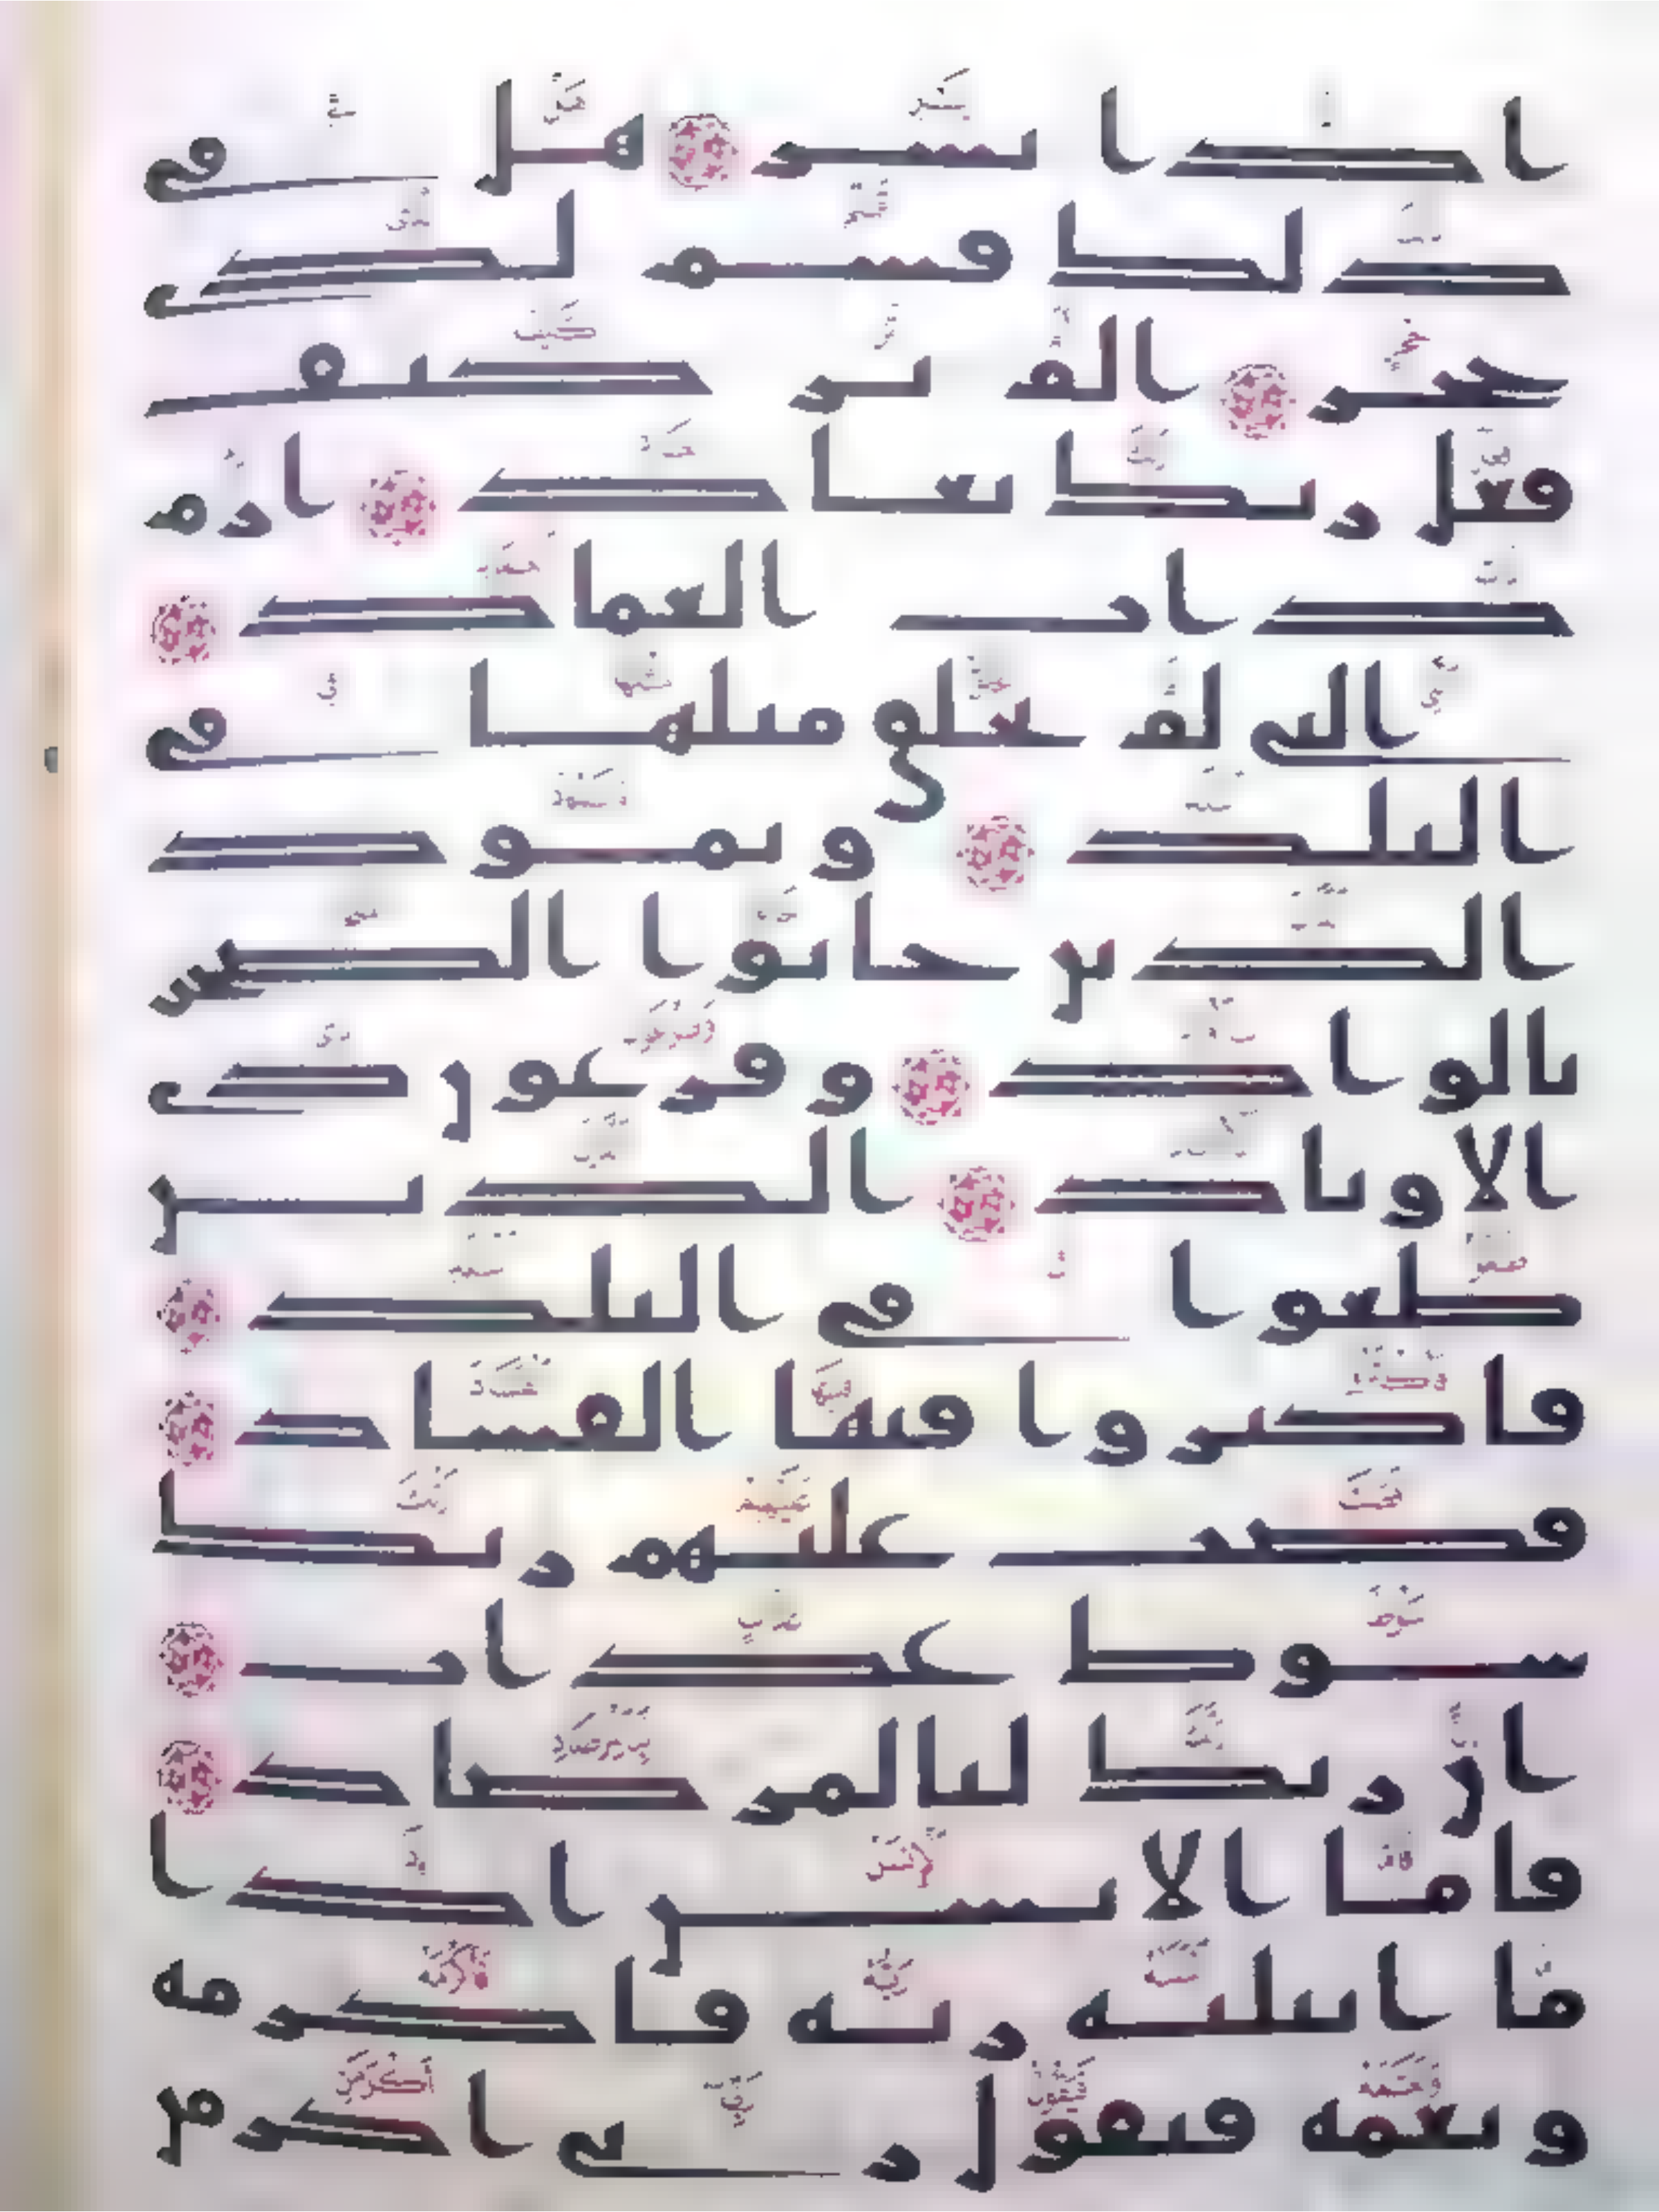 اذا يسر هل في
ذلك قسم لذي
حجر الم تر كيف
فعل ربك بعاد ارم
ذات العماد
التي لم يخلق مثلها في
البلد وثمود
الذين جابوا الصخر
بالواد وفرعون ذي
الاوتاد الذين
طغوا في البلد
فاكثروا فيها الفساد
فصب عليهم ربك
سوط عذاب
ان ربك لبالمرصاد
فاما الانسن اذا
ما ابتليه ربه فاكرمه
ونعمه فيقول ربي اكرمن